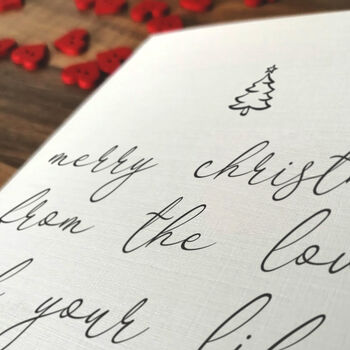 merry christ
from the lo
your